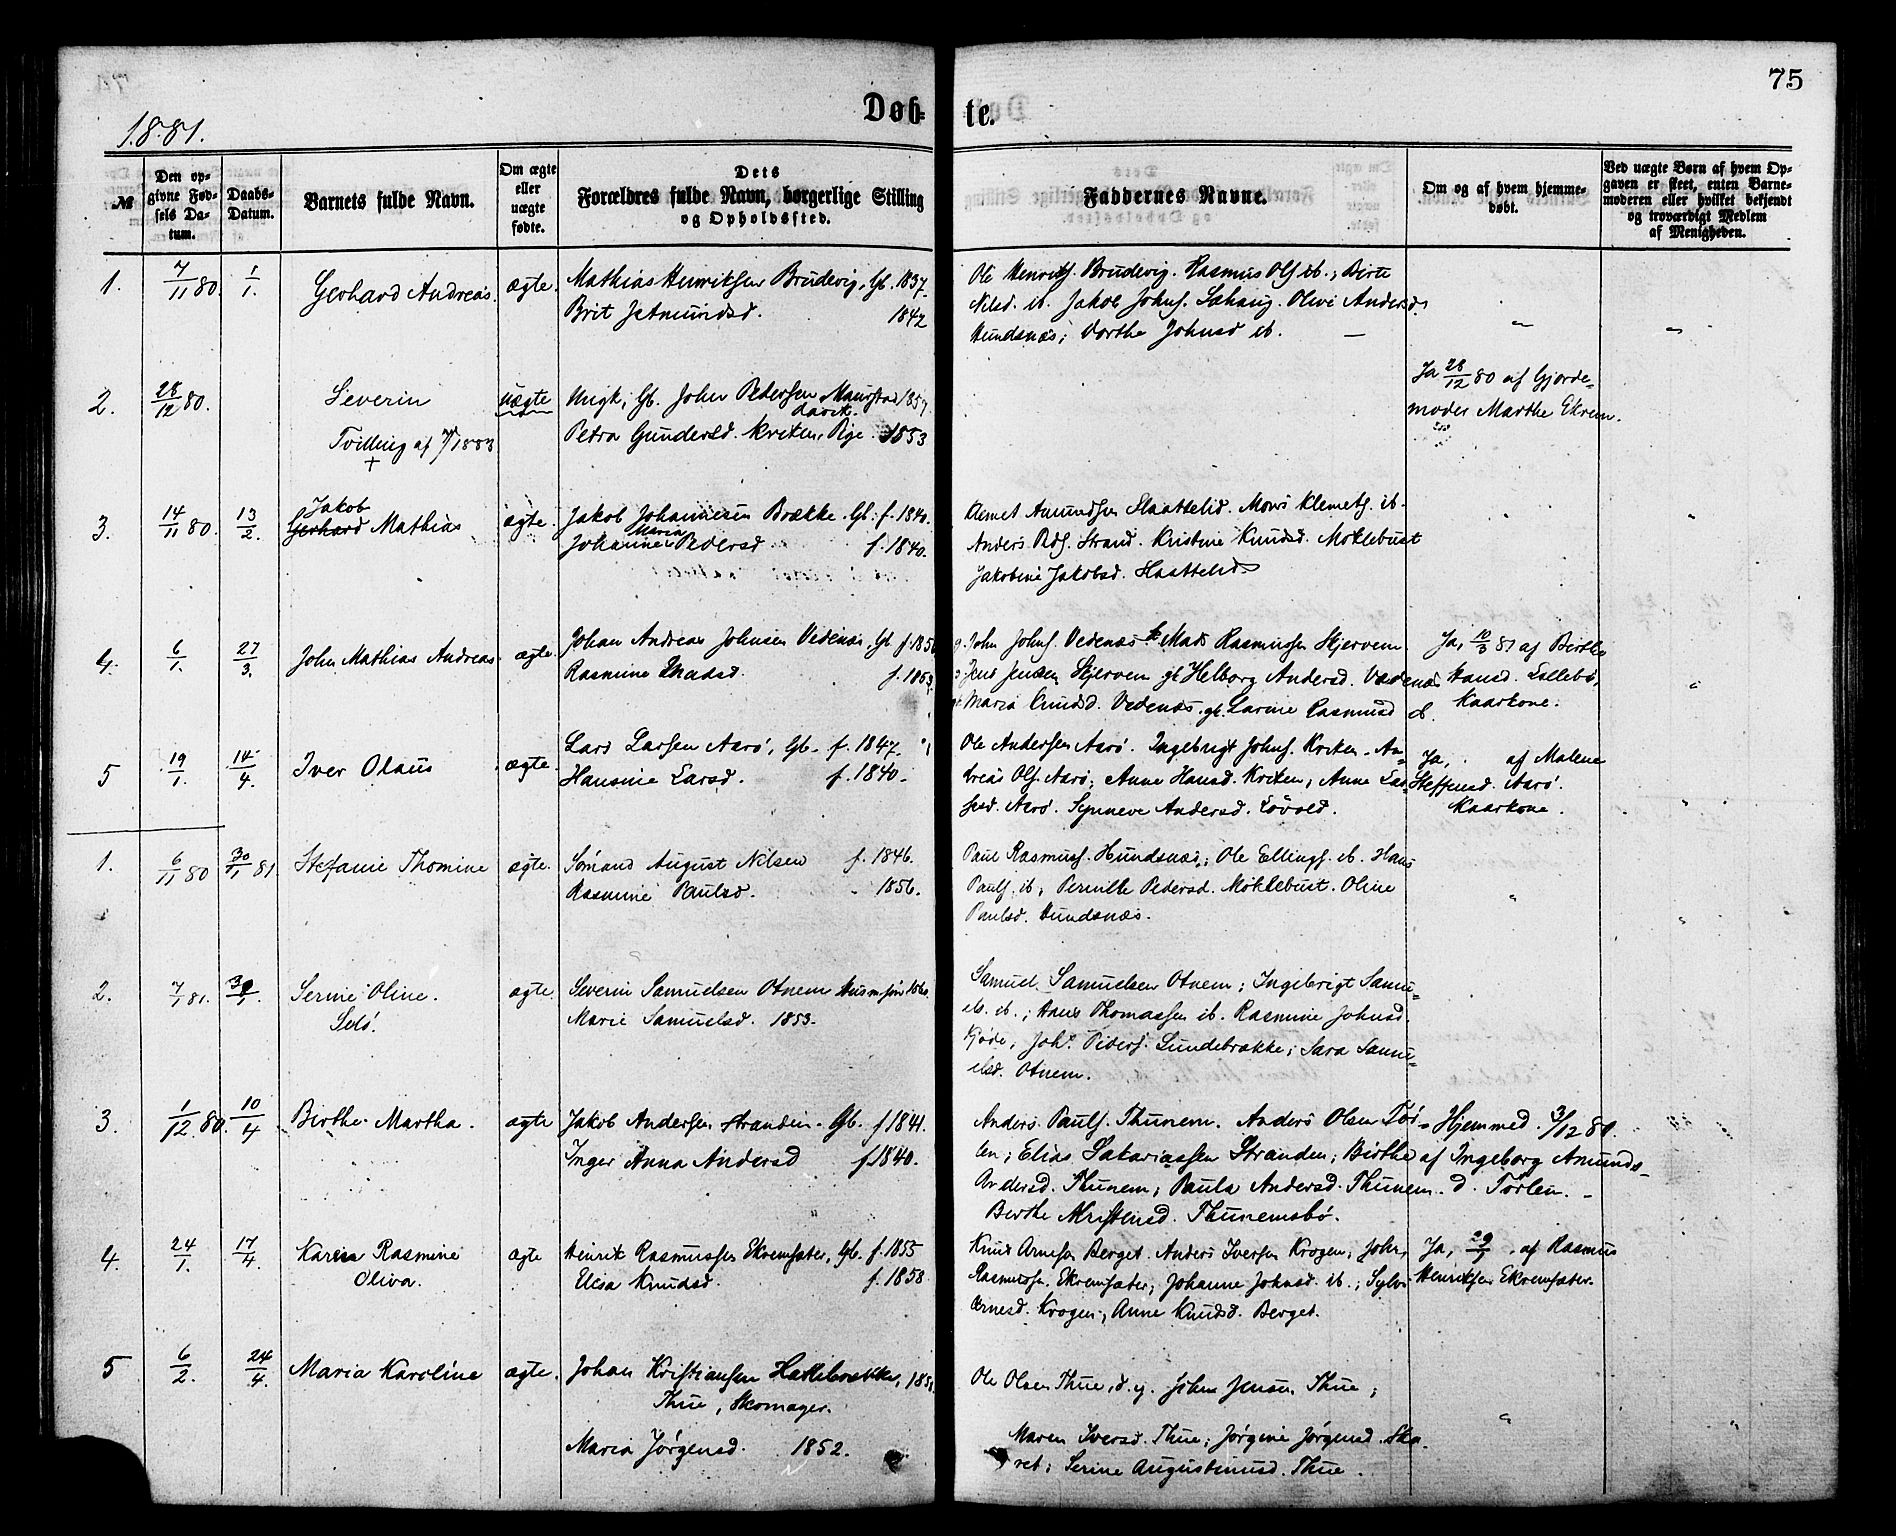 75
Døb- te.
1881.
№
Den op-
givne Fød-
sels Da-
tum.
Daabs-
Datum.
Barnets fulde Navn.
Om ægte
eller
uægte
fødte.
Dets
Forældres fulde Navn, borgerlige Stilling
og Opholdssted.
Faddernes Navne.
Om og af hvem hjemme-
døbt.
Ved uægte Børn af hvem Op-
gaven er skeet, enten Barne-
moderen eller hvilket bekjendt
og troværdigt Medlem
af Menigheden.
1. 7/11 80. 1/1. Gerhard Andreas. ægte. Mathias Henriksen Brudevig, Gb. 1837.
Brit Jetmundsd. 1842
Ole Henriks. Brudevig. Rasmus Ols. ib.; Birte
Nilsd. ib. Jakob Johns. Sæhaug. Olive Andersd.
Hundsnæs; Dorthe Johnsd ib. —
2. 28/12 80. Severin uægte Ungk. Gb. John Pedersen Maurstad 1857
Tvilling af 1883
Petra Gundersd. Kriken, Pige 1853
Ja 28/12 80 af Gjorde-
moder Marthe Ekrem.
3. 14/11 80. 13/2. Jakob
Gerhard Mathias ægte. Jakob Johannesen Brække. Gb. f. 1840.
Maria
Johanne Pedersd f. 1840.
Klemet Amundsen Slaattelid. Mons Klemets. ib.
Anders Pds. Strand. Kristine Knudsd. Møklebust
Jakobine Jakobsd. Slaattelid
4. 6/1. 27/3. John Mathias Andreas. ægte. Johan Andreas Johnsen Vedenæs. Gb f. 185
Rasmine Madsd. f. 1853
John Johns. Vedenæs Mads Rasmussen Skjerven
Jens Jensen Skjerven Helborg Andersd. Vedenæs
Maria Knudsd. Vedenæs. Larine Rasmusd ib.
Ja, 10/3 81 af Birthe
Hansd. Lillebø,
Kaarkone.
5 19/1. 14/4. Iver Olaus ægte. Lars Larsen Aarø, Gb. f. 1847
Hansine Larsd. f. 1840.
Ole Andersen Aarø. Ingebrigt Johns. Kriken. An-
dreas Ols. Aarø; Anne Hansd. Kriken; Anne Las-
sesd. Aarø. Synneve Andersd. Løvold.
Ja, af Malene
Steffensd. Aarø.
Kaarkone.
1. 6/11 80 30/1 81 Stefanie Thomine ægte. Sømand August Nilsen f. 1846.
Rasmine Paulsd. 1856.
Paul Rasmuss. Hundsnæs; Ole Ellings. ib. Hans
Pauls. ib; Pernille Pedersd. Møklebust. Oline
Paulsd. Hundsnæs.
2. 7/1 81. 30/1. Serine Oline. ægte Severin Samuelsen Otnem
Selø. Marie Samuelsd. 1853.
Samuel Samuelsen Otnem; Ingebrigt Samu-
els. ib.; Hans Thomassen ib. Rasmine Johnsd.
Kjøde; Joh. Peders. Lundebrække; Sara Samu-
elsd. Otnem.
3. 1/12 80. 10/4 Birthe Martha. ægte Jakob Andersen Stranden. Gb. f 1841.
Inger Anna Andersd f 1840.
Anders Pauls. Thunem. Anders Olsen Tør-
len; Elias Sakariassen Stranden; Birthe
Andersd. Thunem; Paula Andersd. Thunem.
Berthe Kristensd. Thunemsbø.
Hjemmed. 3/12 80.
af Ingeborg Amunds-
d. Tørlen. -
4. 24/1. 17/4. Karen Rasmine
Oliva. ægte Henrik Rasmussen Ekremsæter, Gb. f. 1855
Elsa Knudsd. f. 1858
Knud Arnesen Berget. Anders Iversen Krogen; John
Rasmussen. Ekremsæter; Johanne Johnsd. ib.; Sylvi
Arnesd. Krogen; Anne Knudsd. Berget.
Ja, 29/1. af Rasmus
Henriksen Ekremsæter.
5 6/2. 24/4. Maria Karoline ægte. Johan Kristiansen Hatlebrække, 185
Thue, Skomager.
Maria Jørgensd. 1852.
Ole Olsen Thue, d. y. John Jensen Thue;
Maren Iversd. Thue; Jørgine Jørgensd. Ska-
ret; Serine Augustinusd. Thue.